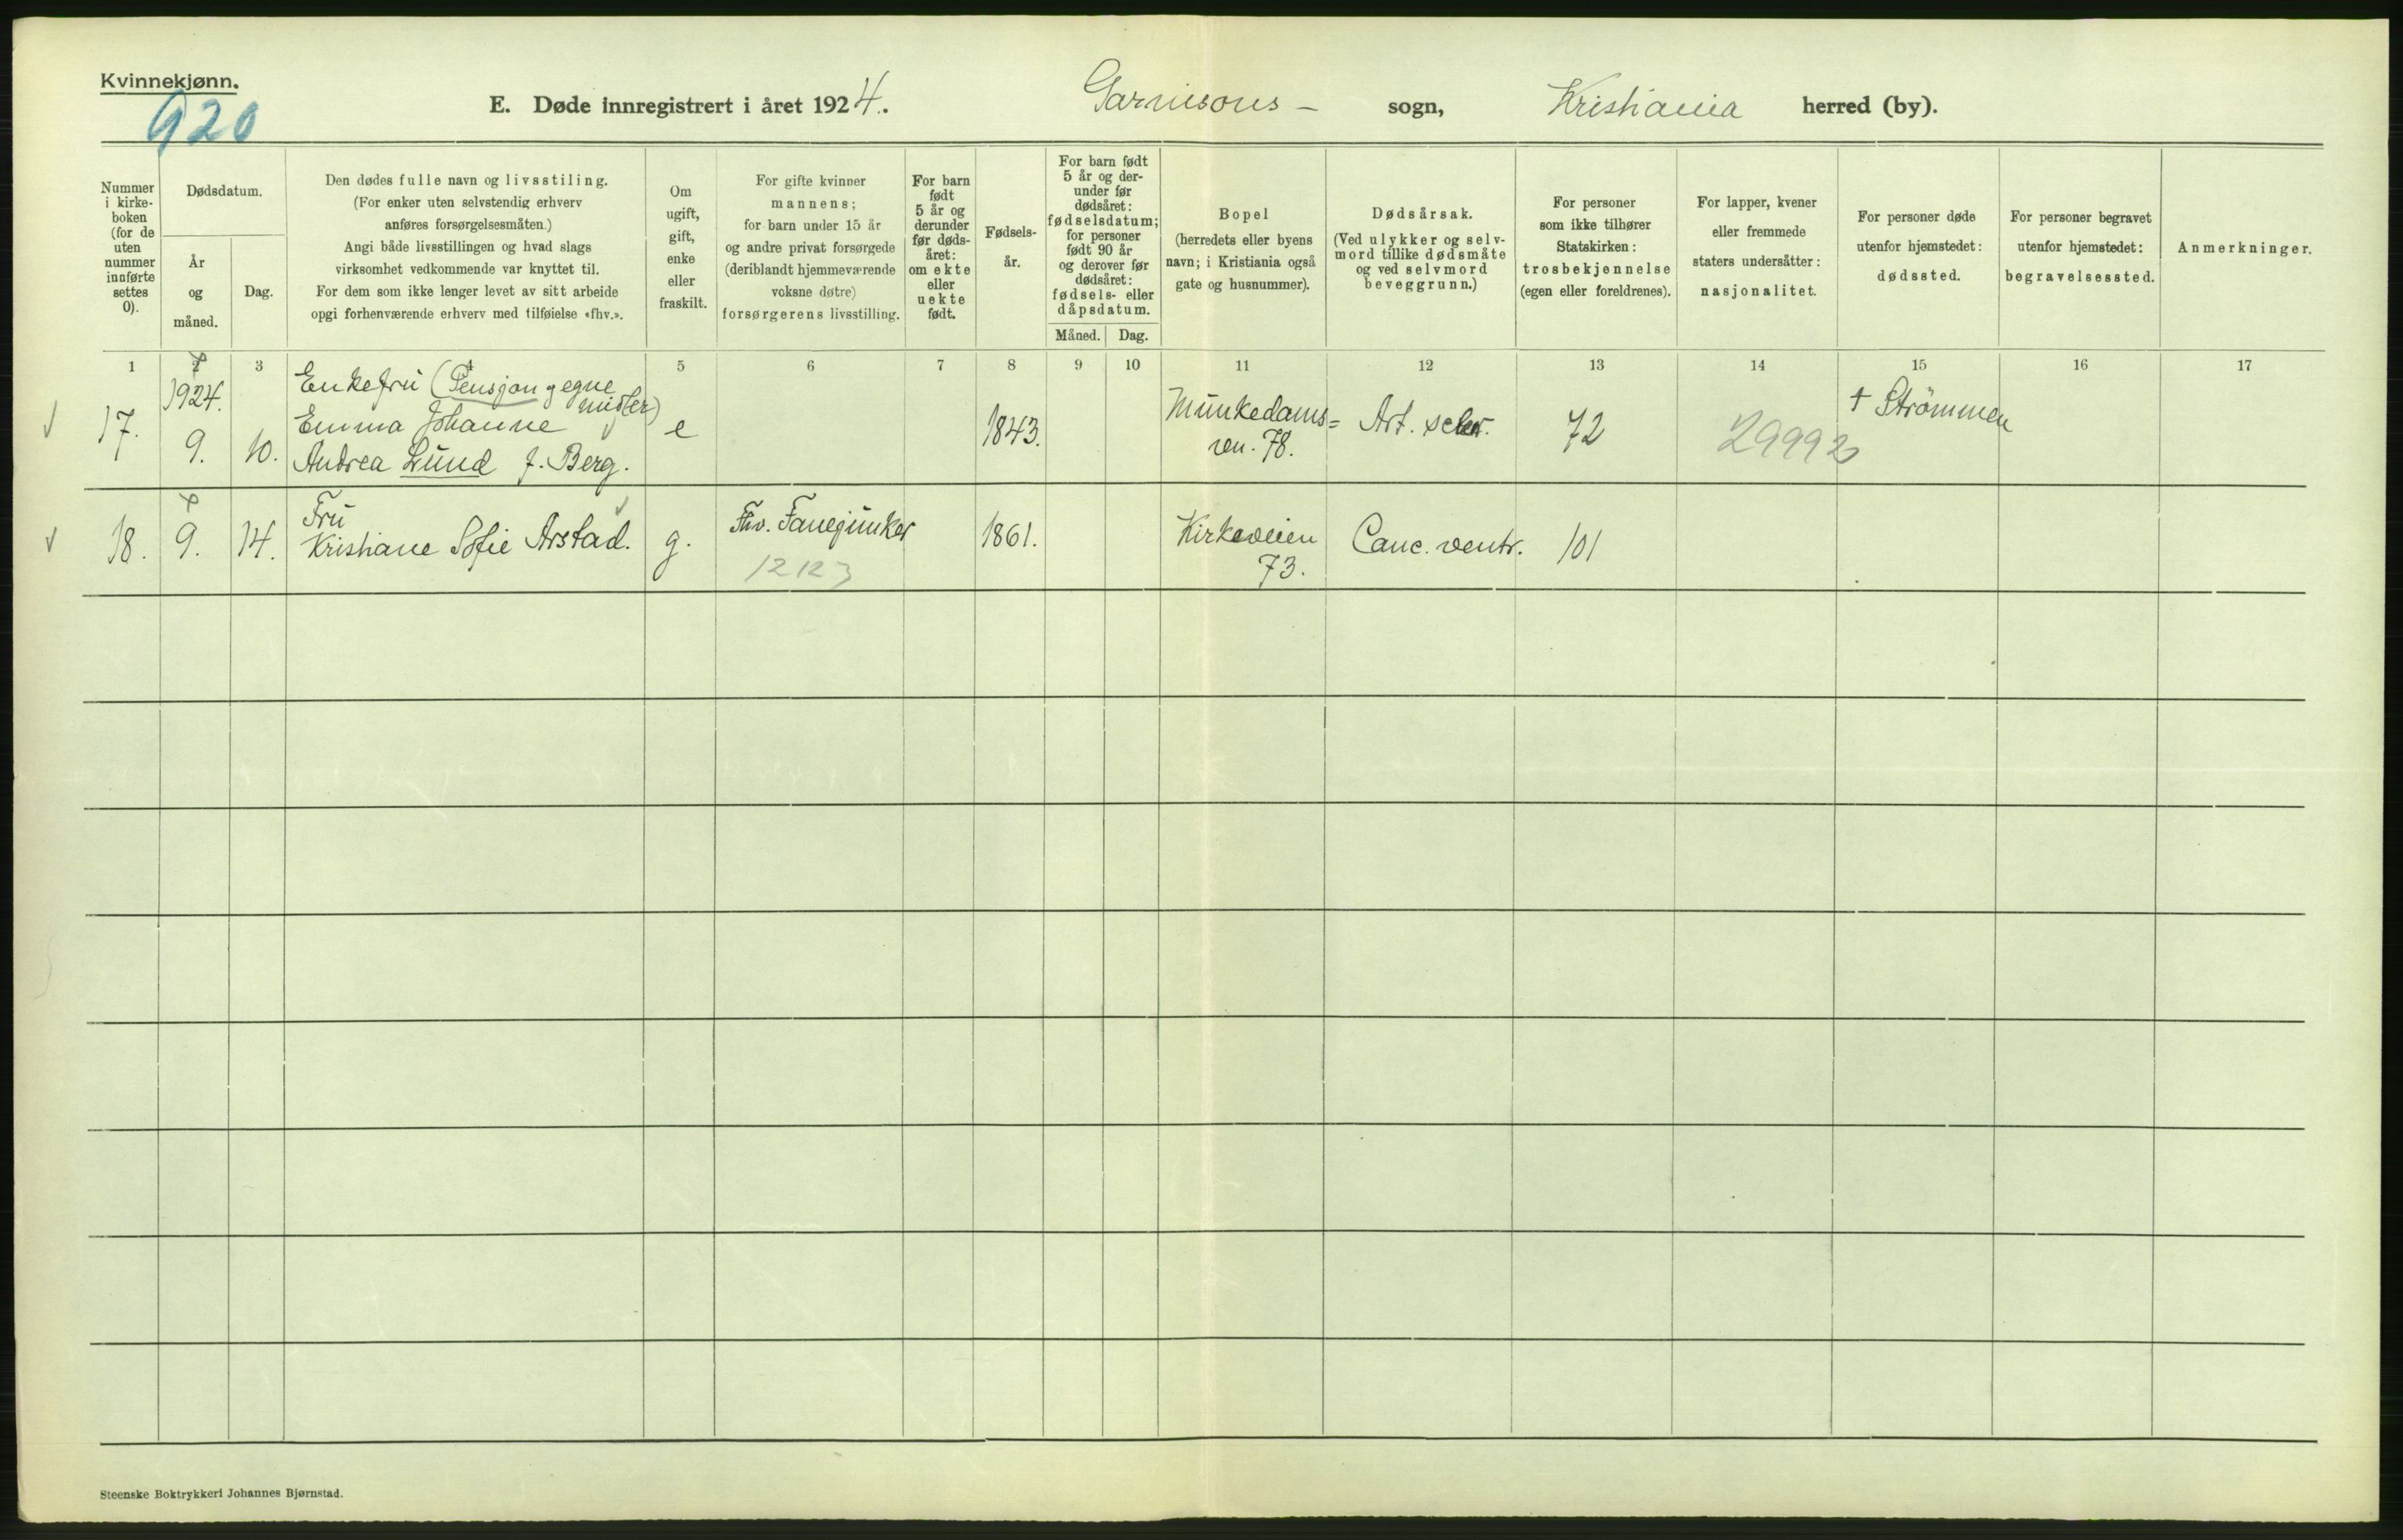 Kvinnekjønn.
920
E. Døde innregistrert i året 1924. Garnisons – sogn, Kristiania herred (by).
Nummer i kirke- boken (for de uten nummer innførte settes 0).
Dødsdatum.
År og måned.
Dag.
Den dødes fulle navn og livsstiling.
(For enker uten selvstendig erhverv
anføres forsørgelsesmåten.)
Angi både livsstillingen og hvad slags
virksomhet vedkommende var knyttet til.
For dem som ikke lenger levet av sitt arbeide
opgi forhenværende erhverv med tilføielse «fhv.».
Om
ugift,
gift,
enke
eller
fraskilt.
For gifte kvinner
mannens;
for barn under 15 år
og andre privat forsørgede
(deriblandt hjemmeværende
voksne døtre)
forsørgerens livsstilling.
For barn
født
5 år og
derunder
før døds-
året:
om ekte
eller
uekte
født.
Fødsels-
år.
For barn født
5 år og der-
under før
dødsåret:
fødselsdatum;
for personer
født 90 år
og derover før
dødsåret:
fødsels- eller
dåpsdatum.
Måned. Dag.
Bopel
(herredets eller byens
navn; i Kristiania også
gate og husnummer).
Dødsårsak.
(Ved ulykker og selv-
mord tillike dødsmåte
og ved selvmord
beveggrunn.)
For personer
som ikke tilhører
Statskirken:
trosbekjennelse
(egen eller foreldrenes).
For lapper, kvener
eller fremmede
staters undersåtter:
nasjonalitet.
For personer døde
utenfor hjemstedet:
dødssted.
For personer begravet
utenfor hjemstedet:
begravelsessted.
Anmerkninger.
1 2 3 4 5 6 7 8 9 10 11 12 13 14 15 16 17
1924.
17. 9. 10.
Enkefru (Pensjon og egne
midler)
Emma Johanne
Andrea Lund f. Berg.
e
1843.
Munkedams=
ven. 78.
Art. scler.
72
29992
† Strömmen
18. 9. 14.
Fru
Kristiane Sofie Arstad.
g.
Fhv. Fanejunker
12123
1861.
Kirkeveien
73.
Canc. ventr.
101
Steenske Boktrykkeri Johannes Bjørnstad.